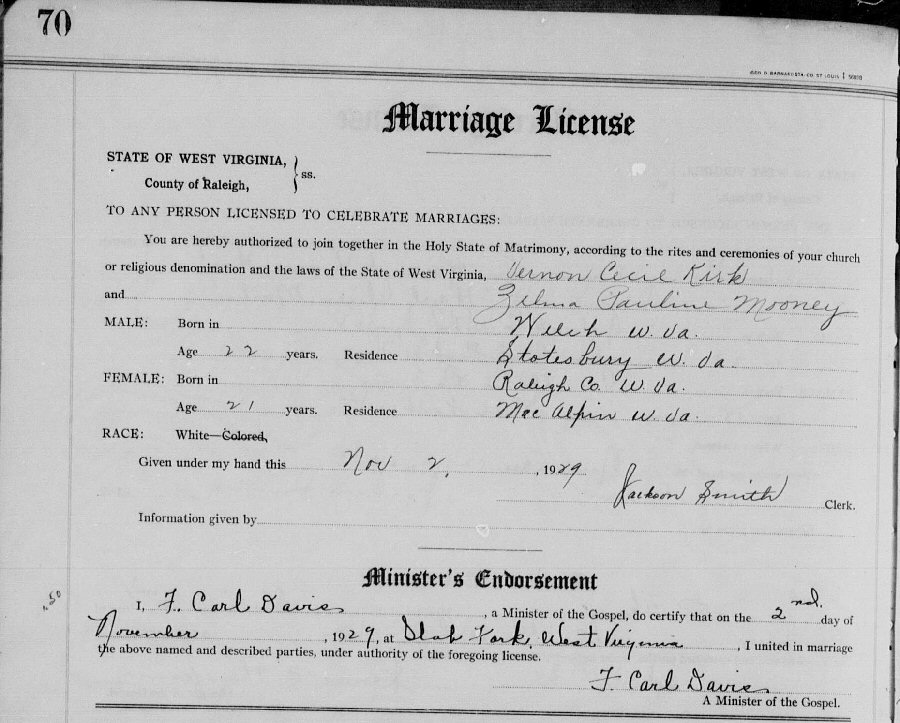 70
GEO. D. BARNARD STA. CO. ST. LOUIS
Marriage License
STATE OF WEST VIRGINIA, } ss.
County of Raleigh,
TO ANY PERSON LICENSED TO CELEBRATE MARRIAGES:
You are hereby authorized to join together in the Holy State of Matrimony, according to the rites and ceremonies of your church
or religious denomination and the laws of the State of West Virginia, Vernon Cecil Kirk
and Zelma Pauline Mooney
MALE: Born in Welch W. Va.
Age 22 years. Residence Stotesbury W. Va.
FEMALE: Born in Raleigh Co. W. Va.
Age 21 years. Residence Mac Alpin W. Va.
RACE: White—Colored,
Given under my hand this Nov 2, , 1929
Jackson Smith Clerk.
Information given by
Minister's Endorsement
I, F. Carl Davis , a Minister of the Gospel, do certify that on the 2nd. day of
November , 1929, at Slab Fork, West Virginia , I united in marriage
the above named and described parties, under authority of the foregoing license.
F. Carl Davis
A Minister of the Gospel.